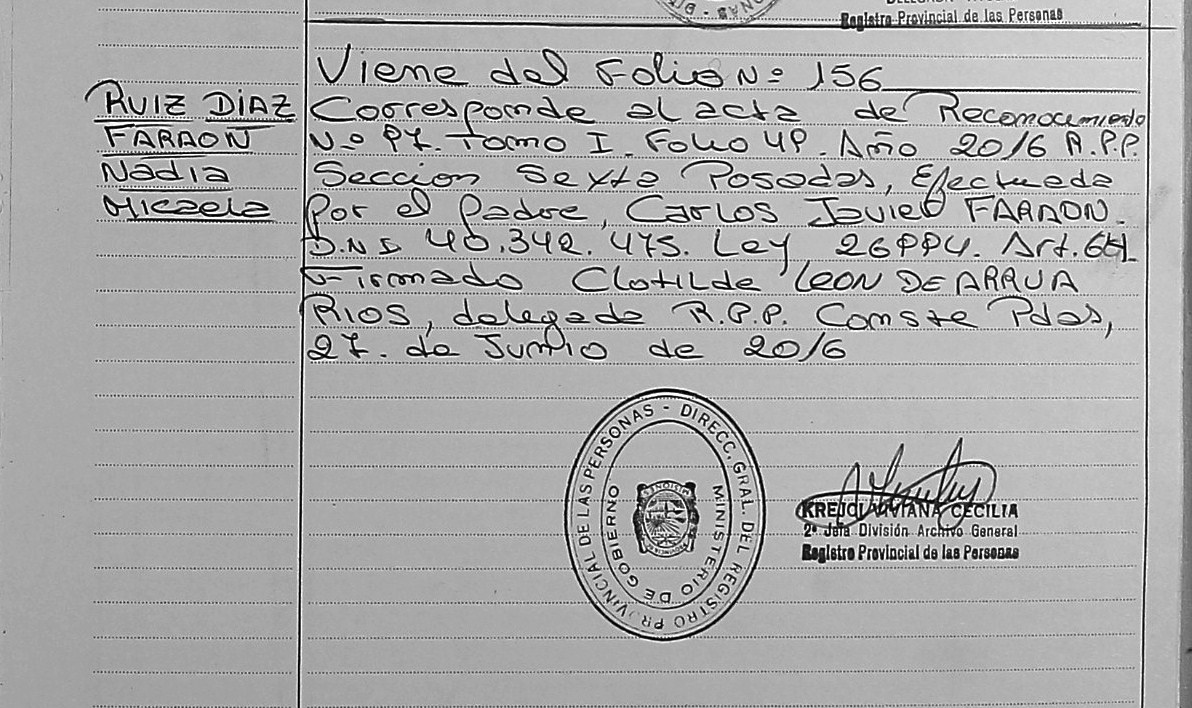 Registro Provincial de las Personas
Viene del Folio Nº 156
RUIZ DIAZ
FARAON
Nadia
Micaela
Corresponde al acta de Reconocimiento
Nº 97. Tomo I. Folio 49. Año 2016 R.P.P.
Seccion Sexta Posadas, Efectuada
Por el Padre, Carlos Javier FARAON.
D.N.I 40.342.475. Ley 26994. Art.641
Firmado Clotilde LEON DE ARRUA
RIOS, delegada R.P.P. Conste Pdas,
27. de Junio de 2016
DIRECC. GRAL. DEL REGISTRO PROVINCIAL DE LAS PERSONAS -
MINISTERIO DE GOBIERNO
KREJCI VIVIANA CECILIA
2º Jefa División Archivo General
Registro Provincial de las Personas